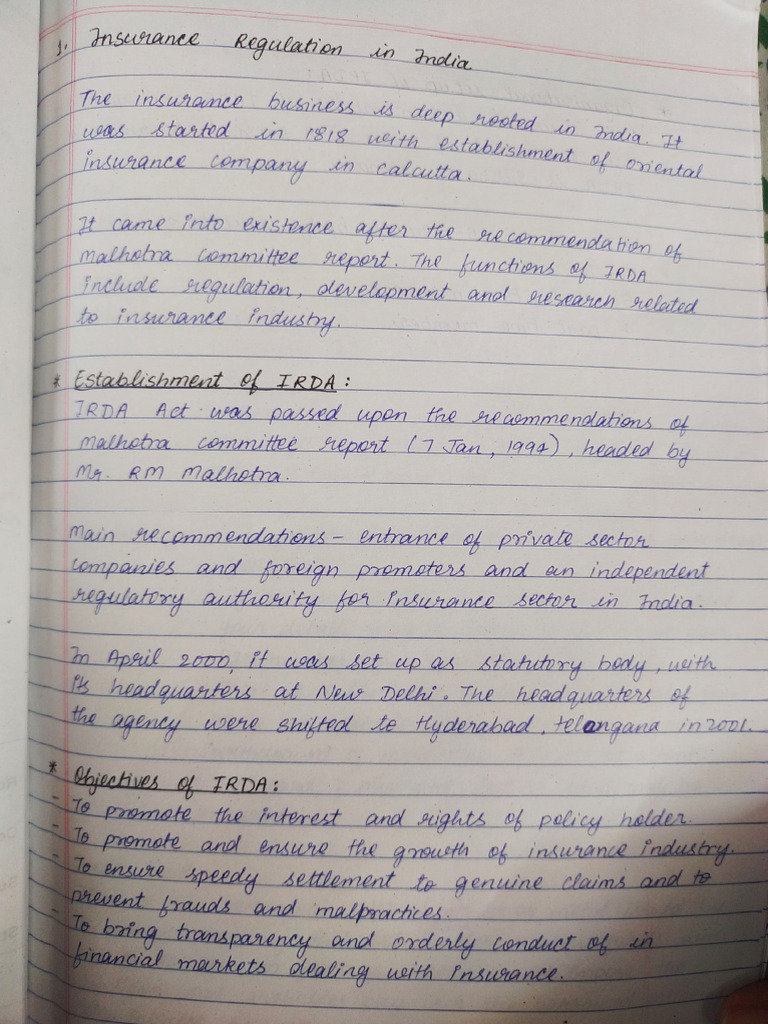 1. Insurance Regulation in India
The insurance business is deep rooted in India. It
was started in 1818 with establishment of oriental
insurance company in calcutta.
It came into existence after the recommendation of
malhotra committee report. The functions of IRDA
include regulation, development and research related
to insurance industry.
* Establishment of IRDA :
IRDA Act was passed upon the recommendations of
malhotra committee report (7 Jan, 1994), headed by
Mr. RM Malhotra.
Main recommendations - entrance of private sector
companies and foreign promoters and an independent
regulatory authority for insurance sector in India.
In April 2000, it was set up as statutory body, with
its headquarters at New Delhi. The headquarters of
the agency were shifted to Hyderabad, telangana in 2001.
* Objectives of IRDA :
- To promote the interest and rights of policy holder.
- To promote and ensure the growth of insurance industry.
- To ensure speedy settlement to genuine claims and to
prevent frauds and malpractices.
- To bring transparency and orderly conduct of in
financial markets dealing with insurance.